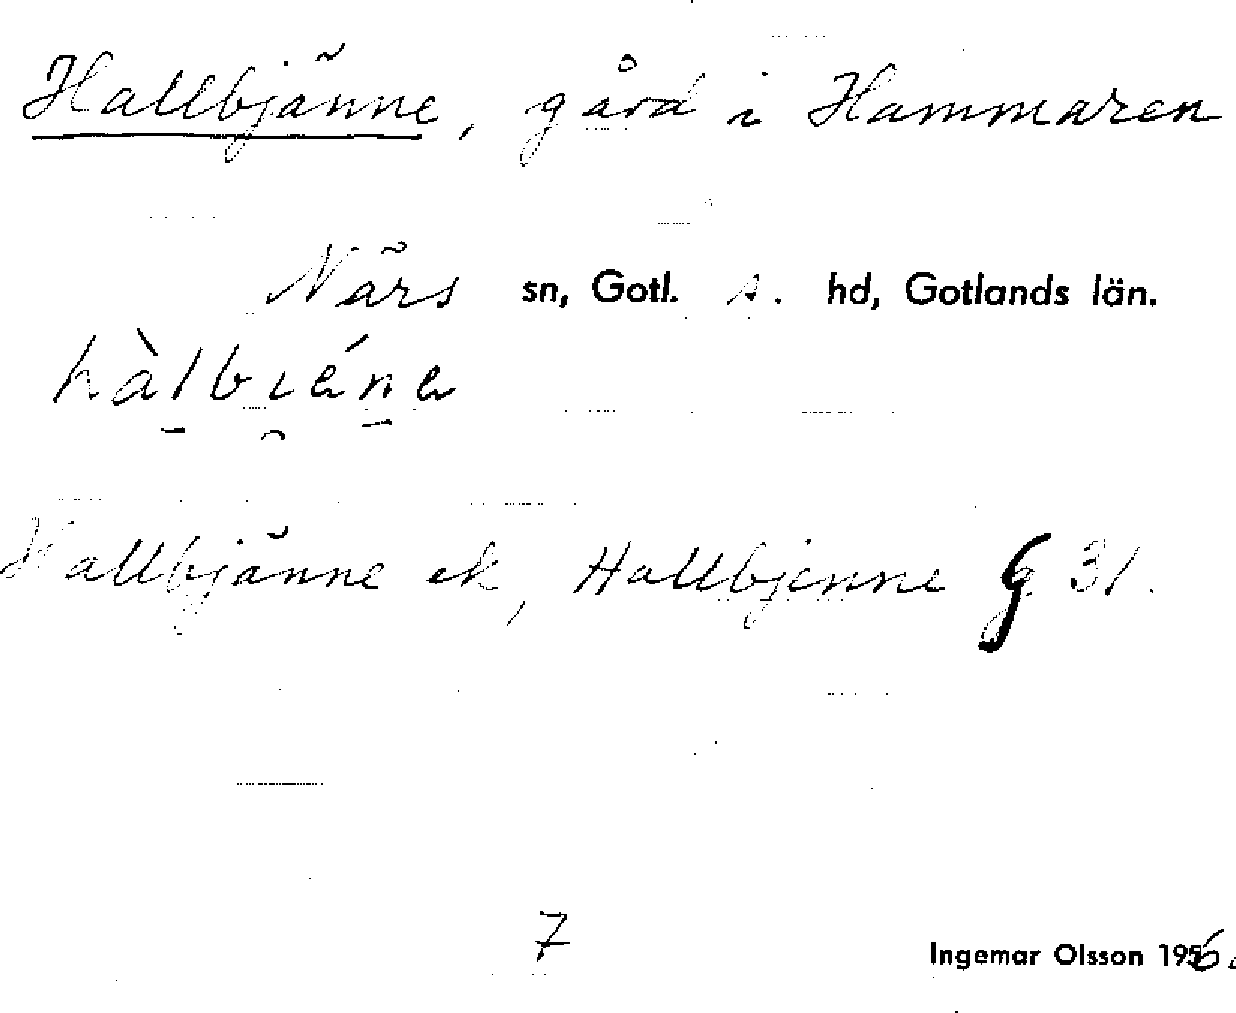 Hallbjänne, gård i Hammaren
Närs sn, Gotl. s. hd, Gotlands län.
hàlbɩéna
Hallbjänne ek, Hallbjenne G 31.
7
Ingemar Olsson 1956.